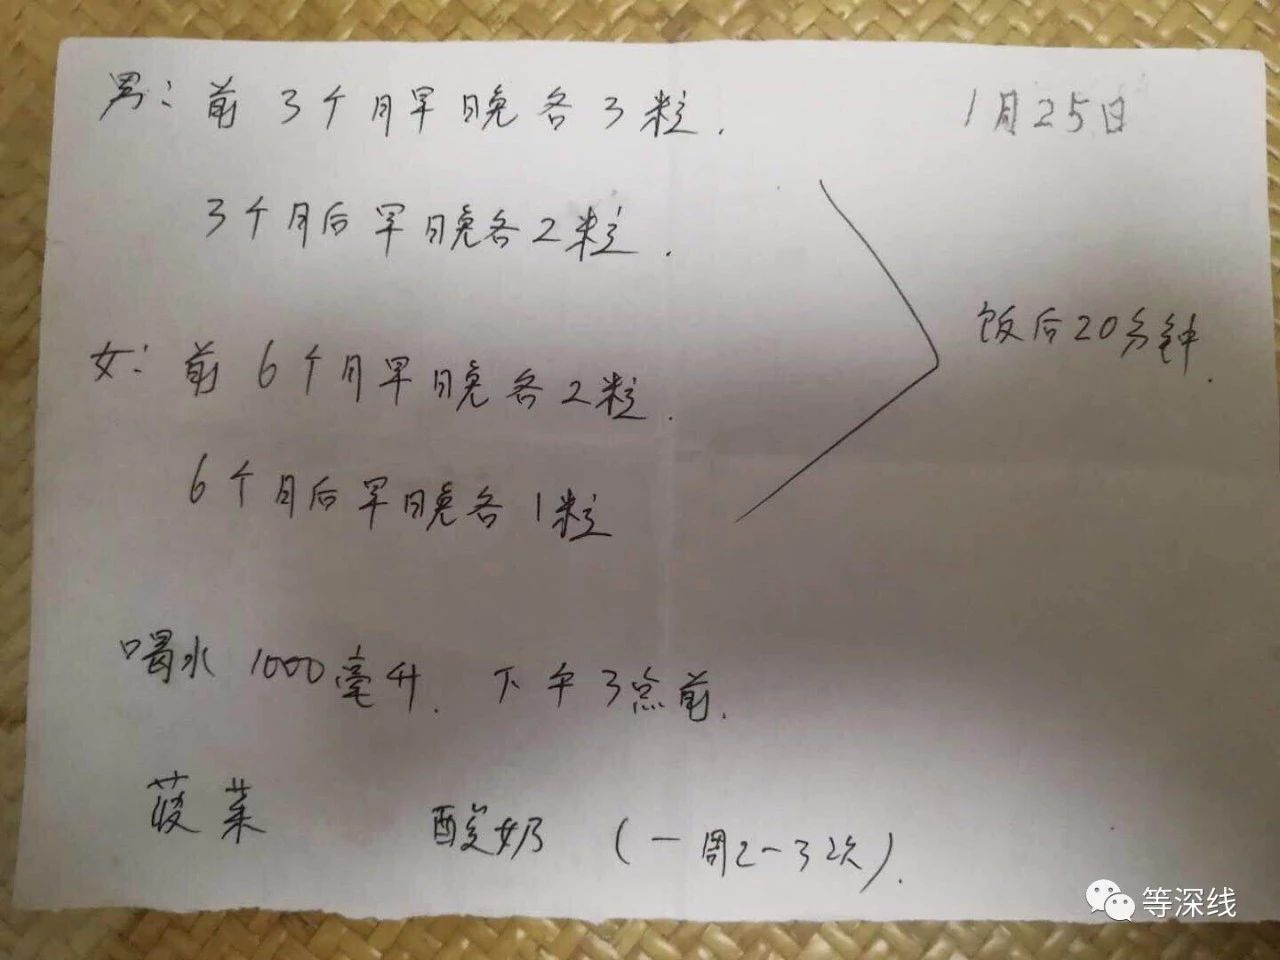 男：前3个月早晚各3粒.
1月25日
3个月后早晚各2粒.
饭后20分钟.
女：前6个月早晚各2粒.
6个月后早晚各1粒
喝水1000毫升.下午3点前.
菠菜 酸奶（一周2-3次).
等深线